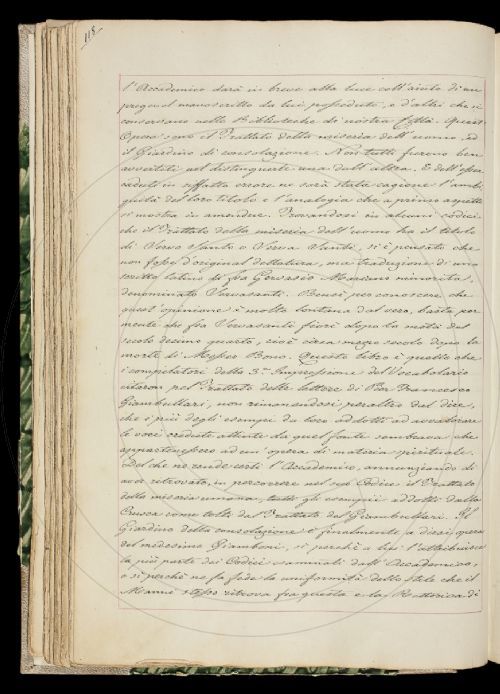 118.
l'Accademico darà in breve alla luce coll'aiuto di un
pregevol manoscritto da lui posseduto, e d'altri che si
conservano nelle Biblioteche di nostra Città. Quest'
Opere sono il Trattato della miseria dell'uomo, ed
il Giardino di consolazione. Non tutti furono ben
avvertiti nel distinguerle una dall'altra. E dell'esser
caduti in siffatto errore ne sarà stata cagione l'ambi
guità del loro titolo e l'analogia che a primo aspetto
si mostra in amendue. Trovandosi in alcuni codici
che il Trattato della miseria dell'uomo ha il titolo
di Vervo Santo o Verva Santi, si è pensato che
non fosse d'original dettatura, ma traduzione di uno
scritto latino di fra Gervasio minorita,
denominato Vervasanti. Bensì per conoscere che
quest'opinione è molto lontana dal vero, basta por
mente che fra Vervasanti fiorì dopo la metà del
secolo decimo quarto, cioè circa mezzo secolo dopo la
morte di Messer Bono. Questo libro è quello che
i compilatori della 3.ª Impressione del Vocabolario
citaron pel Trattato delle lettere di Pier Francesco
Giambullari, non rimanendosi peraltro dal dire,
che i più degli esempi da loro addotti ad avvalorare
le voci credute attinte da quel fonte sembrava che
appartenessero ad un'opera di materia spirituale.
Del che ne rende certi l'Accademico, annunziando di
aver ritrovato, in percorrere nel suo Codice il Trattato
della miseria umana, tutti gli esempii addotti dalla
Crusca come tolti dal Trattato del Giambullari. Il
Giardino della consolazione è finalmente a dirsi opera
del medesimo Giamboni, sì perchè a lui l'attribuisce
la più parte dei Codici esaminati dall'Accademico,
e sì perchè ne fa fede la uniformità dello stile che il
Manni stesso ritrova fra questa e la Rettorica di